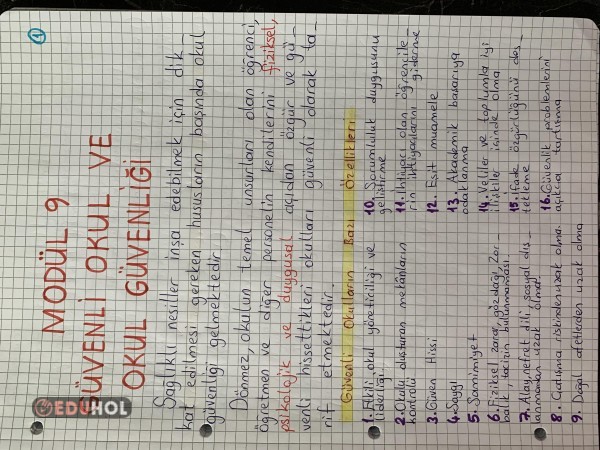 1
MODÜL 9
GÜVENLİ OKUL VE
OKUL GÜVENLİĞİ
Sağlıklı nesiller inşa edebilmek için dik-
kat edilmesi gereken hususların başında okul
güvenliği gelmektedir.
Dönmez, okulun temel unsurları olan öğrenci,
öğretmen ve diğer personelin kendilerini fiziksel,
psikolojik ve duygusal açıdan özgür ve gü-
venli hissettikleri okulları güvenli olarak ta-
rif etmektedir.
Güvenli Okulların Bazı Özellikleri
1. Etkili okul yöneticiliği ve
liderliği.
2. Okulu oluşturan mekanların
kontrolü
3. Güven Hissi
4. Saygı
5. Samimiyet
6. Fiziksel zarar, gözdağı, zor-
balık, tacizin bulunmaması
7. Alay, nefret dili, sosyal dış-
lanmadan uzak olma
8. Çatışma riskinden uzak olma.
9. Doğal afetlerden uzak olma
10. Sorumluluk duygusunu
geliştirme
11. İhtiyacı olan öğrencile-
rin ihtiyaçlarını giderme
12. Eşit muamele
13. Akademik başarıya
odaklanma
14. Veliler ve toplumla iyi
ilişkiler içinde olma
15. İfade özgürlüğünü des-
tekleme
16. Güvenlik problemlerini
açıkça tartışma
EDUHOL